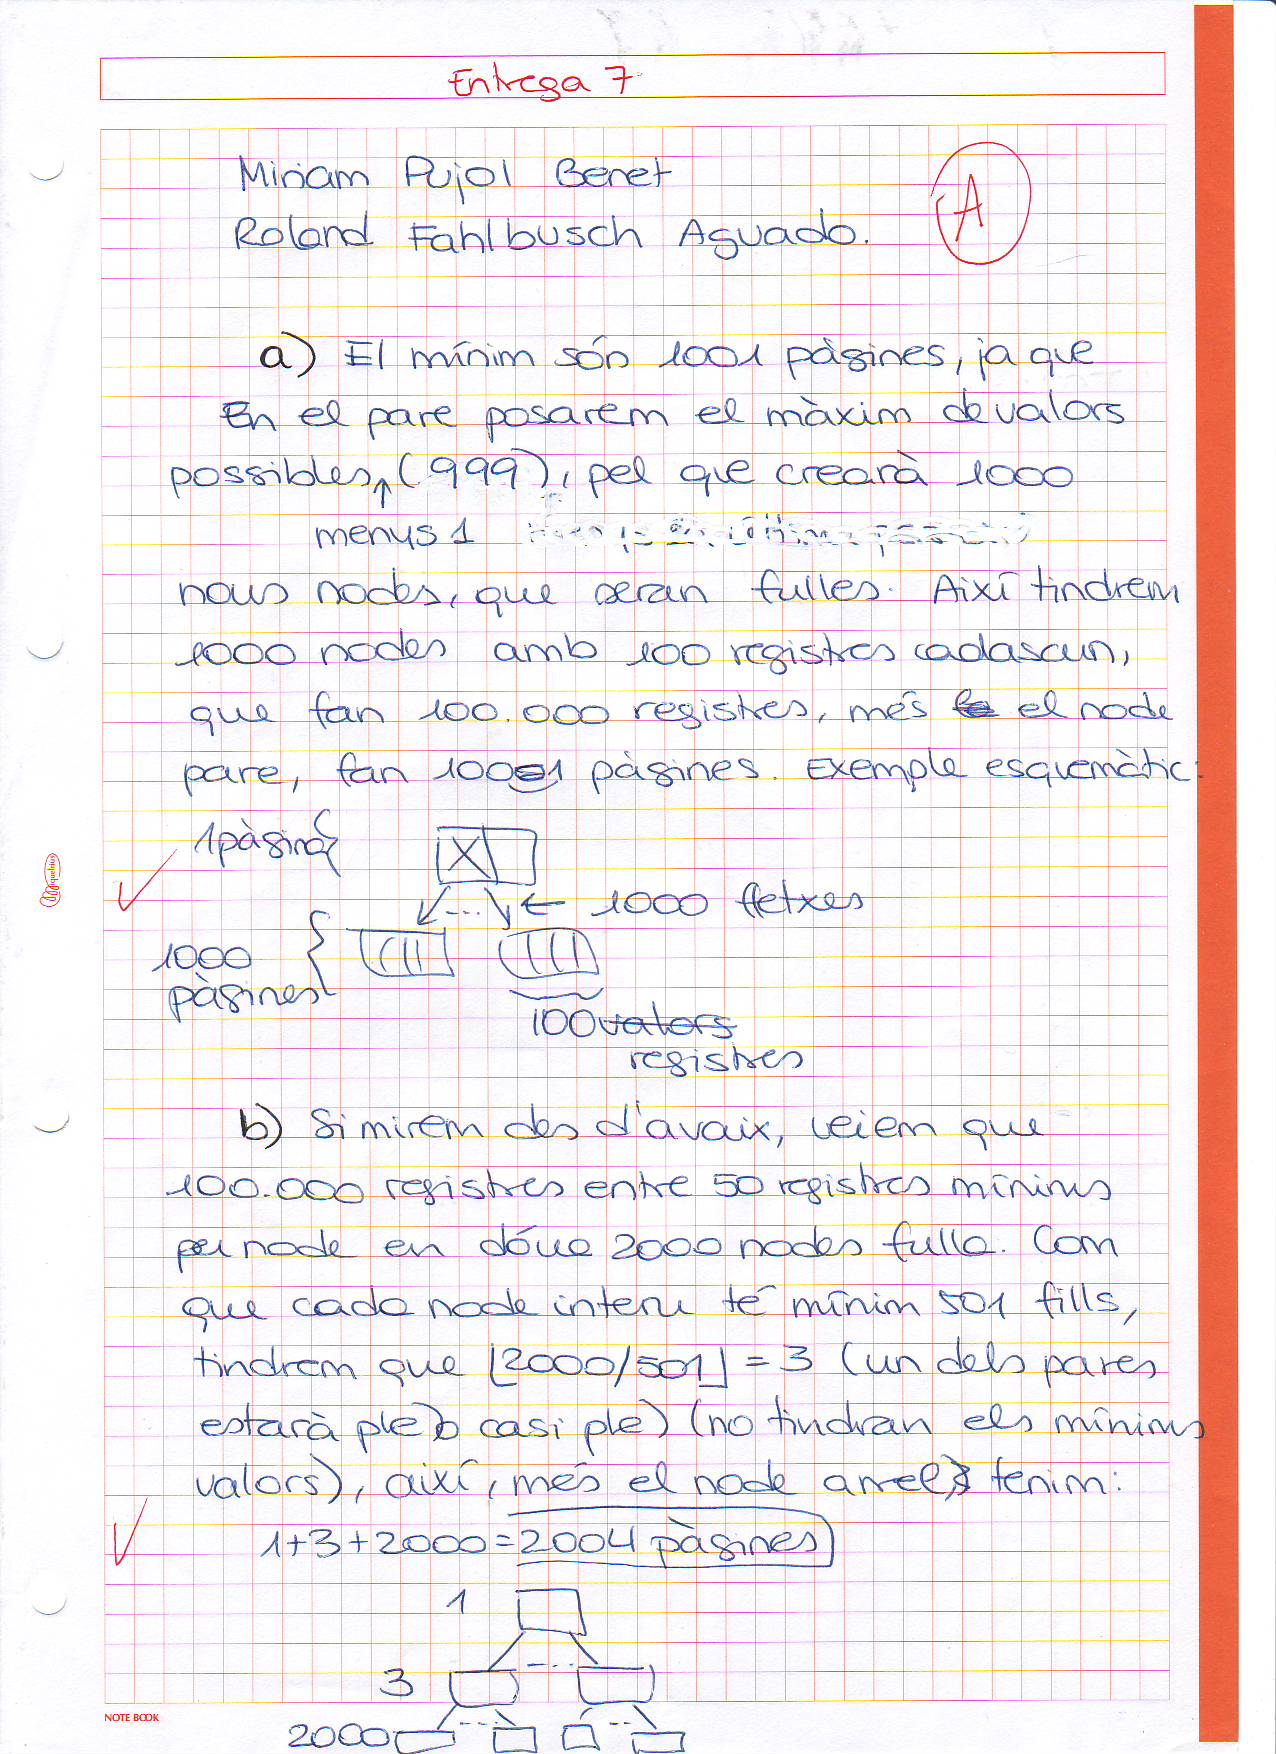 Entrega 7
Miriam Pujol Benet
Roland Fahlbusch Aguado.
A
a) El mínim són 1001 pàgines, ja que
En el pare posarem el màxim de valors
possibles↑(999), pel que crearà 1000
menys 1
nous nodes, que seran fulles. Així tindrem
1000 nodes amb 100 registres cadascun,
que fan 100.000 registres, més el node
pare, fan 1001 pàgines. Exemple esquemàtic:
1 pàgina
← 1000 fletxes
1000
pàgines
100 valors
registres
b) Si mirem des d'avaix, veiem que
100.000 registres entre 50 registres mínims
per node en dóna 2000 nodes fulla. Com
que cada node intern té mínim 501 fills,
tindrem que ⌊2000/501⌋ = 3 (un dels pares
estarà ple o casi ple) (no tindran els mínims
valors), així, més el node arrel, tenim:
1+3+2000 = 2004 pàgines
1
3
2000
NOTE BOOK
miquelrius